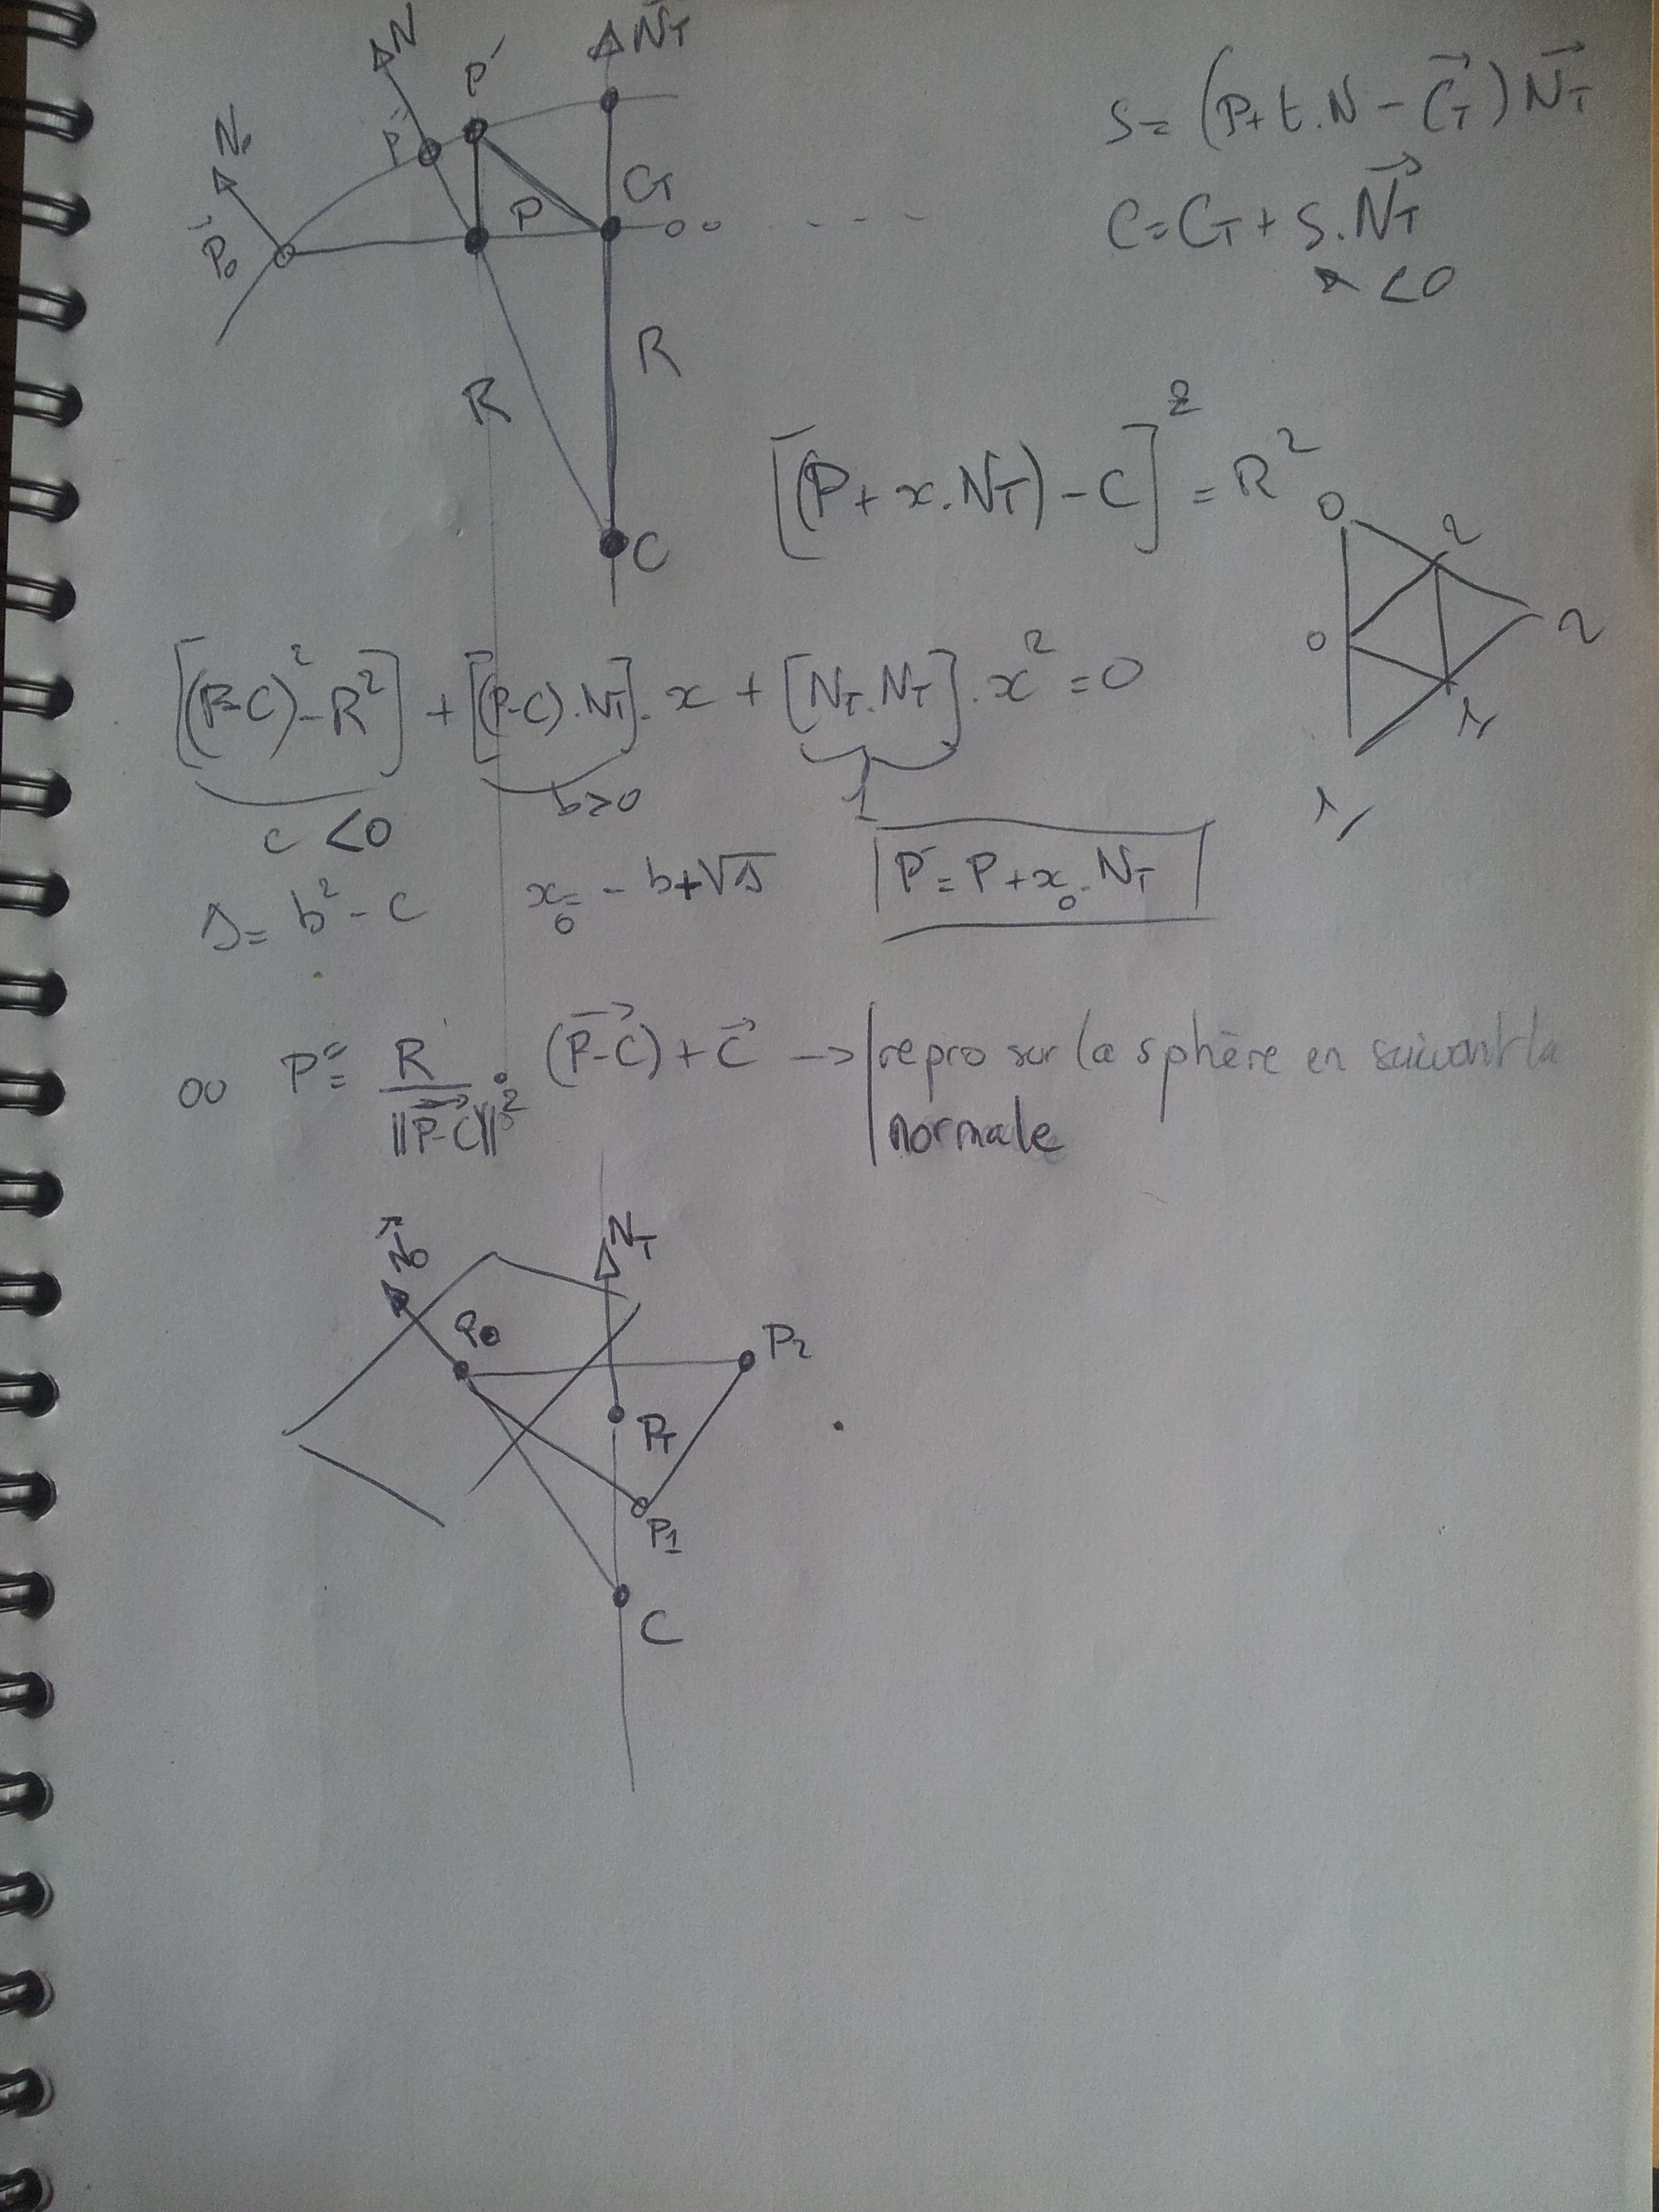 N₀
N
P'
N⃗_T
P''
P₀
P
C_T
R
R
C
S = (P + t.N - C⃗_T) N⃗_T
C = C_T + S.N⃗_T
< 0
[(P + x.N_T) - C]² = R²
0
2
0
2
1
1
[(P-C)² - R²] + [(P-C).N_T].x + [N_T.N_T].x² = 0
c < 0
b > 0
1
Δ = b² - c
x₀ = - b + √Δ
P' = P + x₀.N_T
ou P'' = R / ||P-C||² . (P-C) + C⃗ → repro sur la sphère en suivant la
normale
N⃗₀
N_T
P₀
P₂
P_T
P₁
C